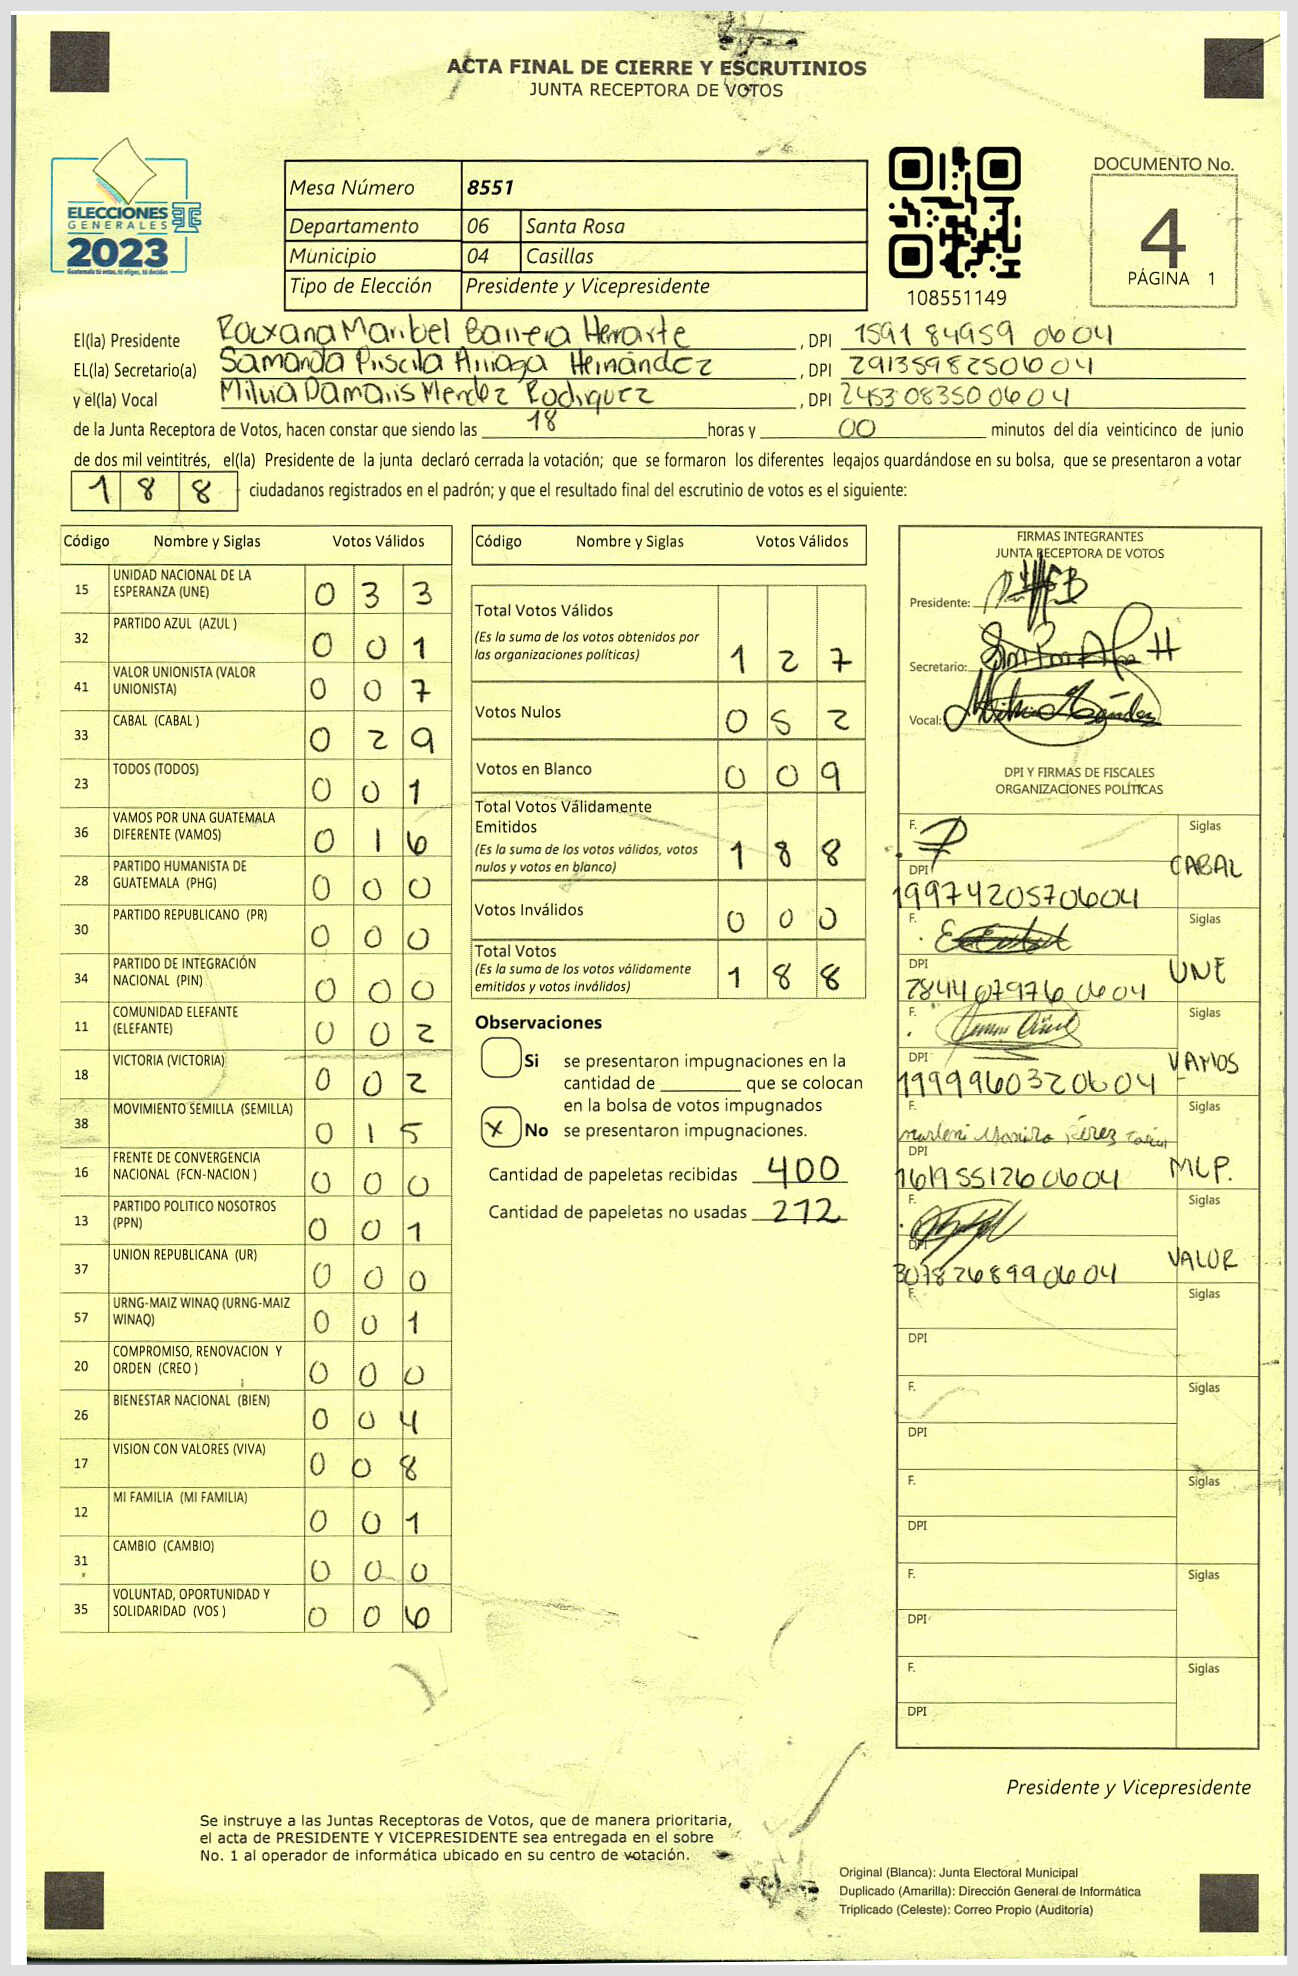 ACTA FINAL DE CIERRE Y ESCRUTINIOS
JUNTA RECEPTORA DE VOTOS
ELECCIONES
GENERALES
2023
Guatemala tú votas, tú eliges, tú decides
Mesa Número 8551
Departamento 06 Santa Rosa
Municipio 04 Casillas
Tipo de Elección Presidente y Vicepresidente
108551149
DOCUMENTO No.
4
PÁGINA 1
El(la) Presidente Roxxana Maribel Barrera Herrarte , DPI 1591 84959 0604
EL(la) Secretario(a) Samanda Priscila Arriaga Hernández , DPI 2913598250604
y el(la) Vocal Milvia Damaris Mendez Rodriguez , DPI 2453 08350 0604
de la Junta Receptora de Votos, hacen constar que siendo las 18 horas y 00 minutos del día veinticinco de junio
de dos mil veintitrés, el(la) Presidente de la junta declaró cerrada la votación; que se formaron los diferentes legajos guardándose en su bolsa, que se presentaron a votar
188 ciudadanos registrados en el padrón; y que el resultado final del escrutinio de votos es el siguiente:
Código Nombre y Siglas Votos Válidos
15 UNIDAD NACIONAL DE LA ESPERANZA (UNE) 0 3 3
32 PARTIDO AZUL (AZUL ) 0 0 1
41 VALOR UNIONISTA (VALOR UNIONISTA) 0 0 7
33 CABAL (CABAL ) 0 2 9
23 TODOS (TODOS) 0 0 1
36 VAMOS POR UNA GUATEMALA DIFERENTE (VAMOS) 0 1 6
28 PARTIDO HUMANISTA DE GUATEMALA (PHG) 0 0 0
30 PARTIDO REPUBLICANO (PR) 0 0 0
34 PARTIDO DE INTEGRACIÓN NACIONAL (PIN) 0 0 0
11 COMUNIDAD ELEFANTE (ELEFANTE) 0 0 2
18 VICTORIA (VICTORIA) 0 0 2
38 MOVIMIENTO SEMILLA (SEMILLA) 0 1 5
16 FRENTE DE CONVERGENCIA NACIONAL (FCN-NACION ) 0 0 0
13 PARTIDO POLITICO NOSOTROS (PPN) 0 0 1
37 UNION REPUBLICANA (UR) 0 0 0
57 URNG-MAIZ WINAQ (URNG-MAIZ WINAQ) 0 0 1
20 COMPROMISO, RENOVACION Y ORDEN (CREO ) 0 0 0
26 BIENESTAR NACIONAL (BIEN) 0 0 4
17 VISION CON VALORES (VIVA) 0 0 8
12 MI FAMILIA (MI FAMILIA) 0 0 1
31 CAMBIO (CAMBIO) 0 0 0
35 VOLUNTAD, OPORTUNIDAD Y SOLIDARIDAD (VOS ) 0 0 6
Código Nombre y Siglas Votos Válidos
Total Votos Válidos 1 2 7
(Es la suma de los votos obtenidos por
las organizaciones políticas)
Votos Nulos 0 5 2
Votos en Blanco 0 0 9
Total Votos Válidamente
Emitidos 1 8 8
(Es la suma de los votos válidos, votos
nulos y votos en blanco)
Votos Inválidos 0 0 0
Total Votos 1 8 8
(Es la suma de los votos válidamente
emitidos y votos inválidos)
Observaciones
Si se presentaron impugnaciones en la
cantidad de ________ que se colocan
en la bolsa de votos impugnados
X No se presentaron impugnaciones.
Cantidad de papeletas recibidas 400
Cantidad de papeletas no usadas 212
FIRMAS INTEGRANTES
JUNTA RECEPTORA DE VOTOS
Presidente:
Secretario:
Vocal:
DPI Y FIRMAS DE FISCALES
ORGANIZACIONES POLÍTICAS
F. Siglas
CABAL
DPI 1997420570604
F. Siglas
UNE
DPI 2844079760604
F. Siglas
VAMOS
DPI 1999960320604
F. Siglas
Pérez
MLP.
DPI 1619551260604
F. Siglas
VALOR
DPI 3078268990604
F. Siglas
DPI
F. Siglas
DPI
F. Siglas
DPI
F. Siglas
DPI
F. Siglas
DPI
Presidente y Vicepresidente
Se instruye a las Juntas Receptoras de Votos, que de manera prioritaria,
el acta de PRESIDENTE Y VICEPRESIDENTE sea entregada en el sobre
No. 1 al operador de informática ubicado en su centro de votación.
Original (Blanca): Junta Electoral Municipal
Duplicado (Amarilla): Dirección General de Informática
Triplicado (Celeste): Correo Propio (Auditoría)